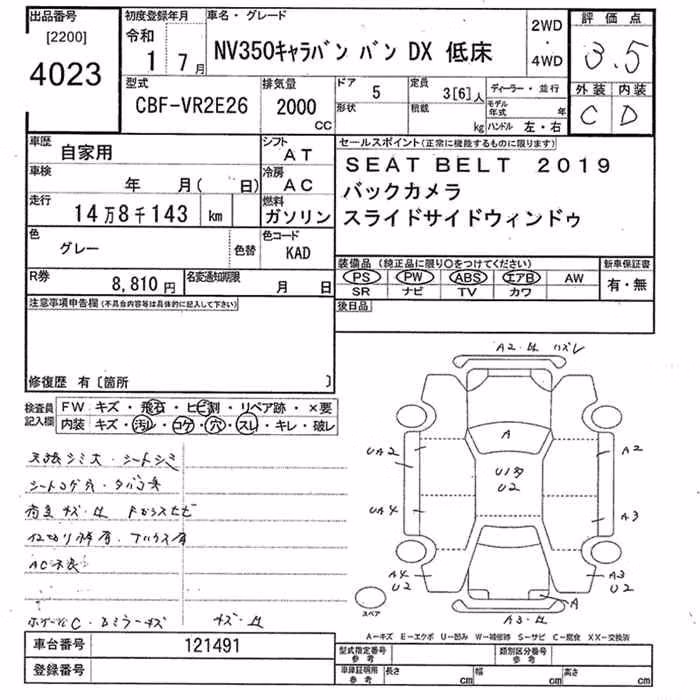 出品番号
[2200]
4023
初度登録年月
令和
1 7月
車名・グレード
NV350キャラバン バン DX 低床
2WD
・
4WD
評価点
3.5
型式
CBF-VR2E26
排気量
2000
CC
ドア
5
定員
3[6]人
ディーラー・並行
形状
積載
kg
モデル年式
年
ハンドル 左・右
外装 内装
C D
車歴
自家用
シフト
AT
セールスポイント(正常に機能するものに限ります)
SEAT BELT 2019
バックカメラ
スライドサイドウィンドゥ
車検
年 月( 日)
冷房
AC
走行
14万8千143 km
燃料
ガソリン
色
グレー
色替
色コード
KAD
装備品(純正品に限り○をつけてください)
PS PW ABS エアB AW
SR ナビ TV カワ
新車保証書
有・無
R券
8,810円
名変通知期限
月 日
後日品
注意事項申告欄(不具合内容等は具体的に記入して下さい)
修復歴 有〔箇所 〕
検査員記入欄
FW キズ・飛石・ヒビ割・リペア跡・×要
内装 キズ・汚れ・コゲ・穴・スレ・キレ・破レ
天張シミ大・シートシミ
シートコゲ穴・タバコ臭
荷室キズ・凹 Fガラスヒビ
AC不良
キズ・凹
A2・凹 ハズレ
A
UA2
A2
U2
UA4
A3
A4
U2
A3
U2
A
スペア
A3・凹
A-キズ E-エクボ U-凹み W-補修跡 S-サビ C-腐食 XX-交換済
車台番号
121491
登録番号
型式指定番号
参考
類別区分番号
参考
車庫証明用
参考
長さ
cm
幅
cm
高さ
cm